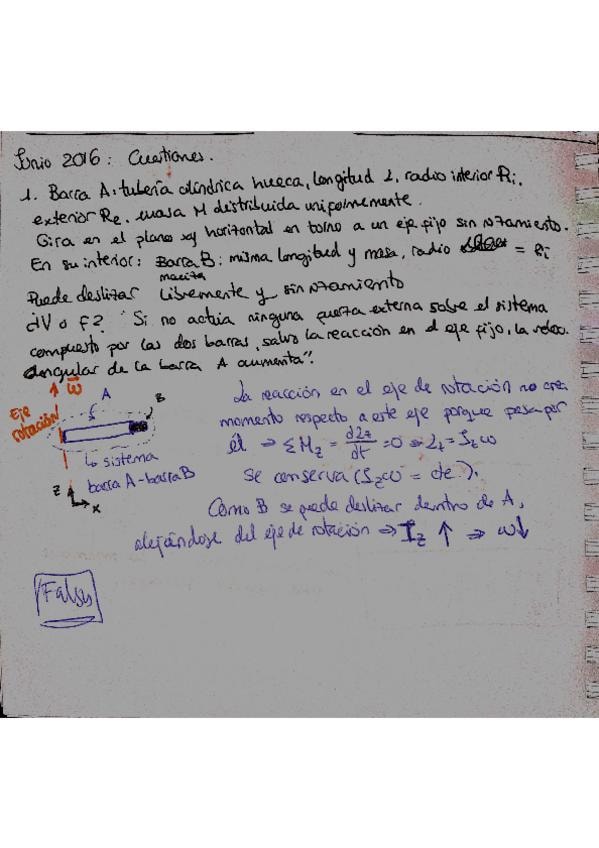 Junio 2016: Cuestiones.
1. Barra A: tubería cilíndrica hueca, longitud L, radio interior Ri,
exterior Re, masa M distribuida uniformemente.
Gira en el plano xy horizontal en torno a un eje fijo sin rozamiento.
En su interior: Barra B: misma longitud y masa, radio = Ri
maciza
Puede deslizar libremente y sin rozamiento
¿V o F? "Si no actúa ninguna fuerza externa sobre el sistema
compuesto por las dos barras, salvo la reacción en el eje fijo, la veloc.
angular de la barra A aumenta".
ω
A
B
Eje
rotación
↳ sistema
barra A-barra B
z
x
La reacción en el eje de rotación no crea
momento respecto a este eje porque pasa por
él ⇒ ΣMz = dLz/dt = 0 ⇒ Lz = Izω
se conserva (Izω = cte.).
Como B se puede deslizar dentro de A,
alejándose del eje de rotación ⇒ Iz ↑ ⇒ ω↓
Falso